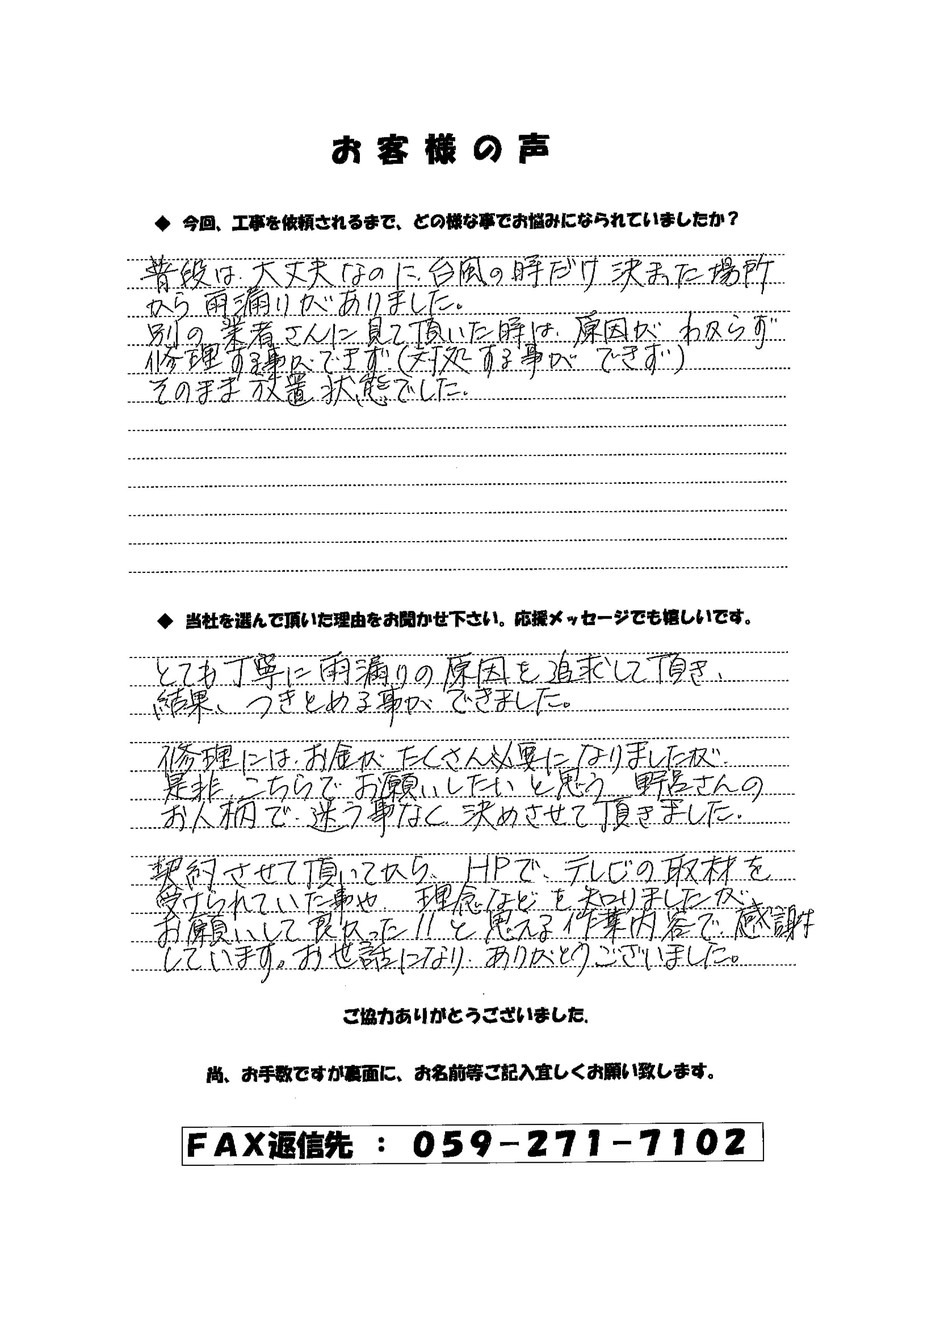 お客様の声
◆ 今回、工事を依頼されるまで、どの様な事でお悩みになられていましたか？
普段は、大丈夫なのに、台風の時だけ 決まった場所
から 雨漏りがありました。
別の業者さんに見て頂いた時は、原因が わからず
修理する事ができず(対処する事が できず)
そのまま放置状態でした。
◆ 当社を選んで頂いた理由をお聞かせ下さい。応援メッセージでも嬉しいです。
とても丁寧に雨漏りの原因を追求して頂き、
結果、つきとめる事が できました。
修理には、お金が たくさん必要になりましたが、
是非、こちらで お願いしたいと思う 野呂さんの
お人柄で、迷う事なく 決めさせて頂きました。
契約させて頂いてから、HPで、テレビの取材を
受けられていた事や、理念などを知りましたが、
お願いして良かった!!と思える作業内容で、感謝は
しています。お世話になり、ありがとうございました。
ご協力ありがとうございました.
尚、お手数ですが裏面に、お名前等ご記入宜しくお願い致します。
ＦＡＸ返信先 ： ０５９－２７１－７１０２